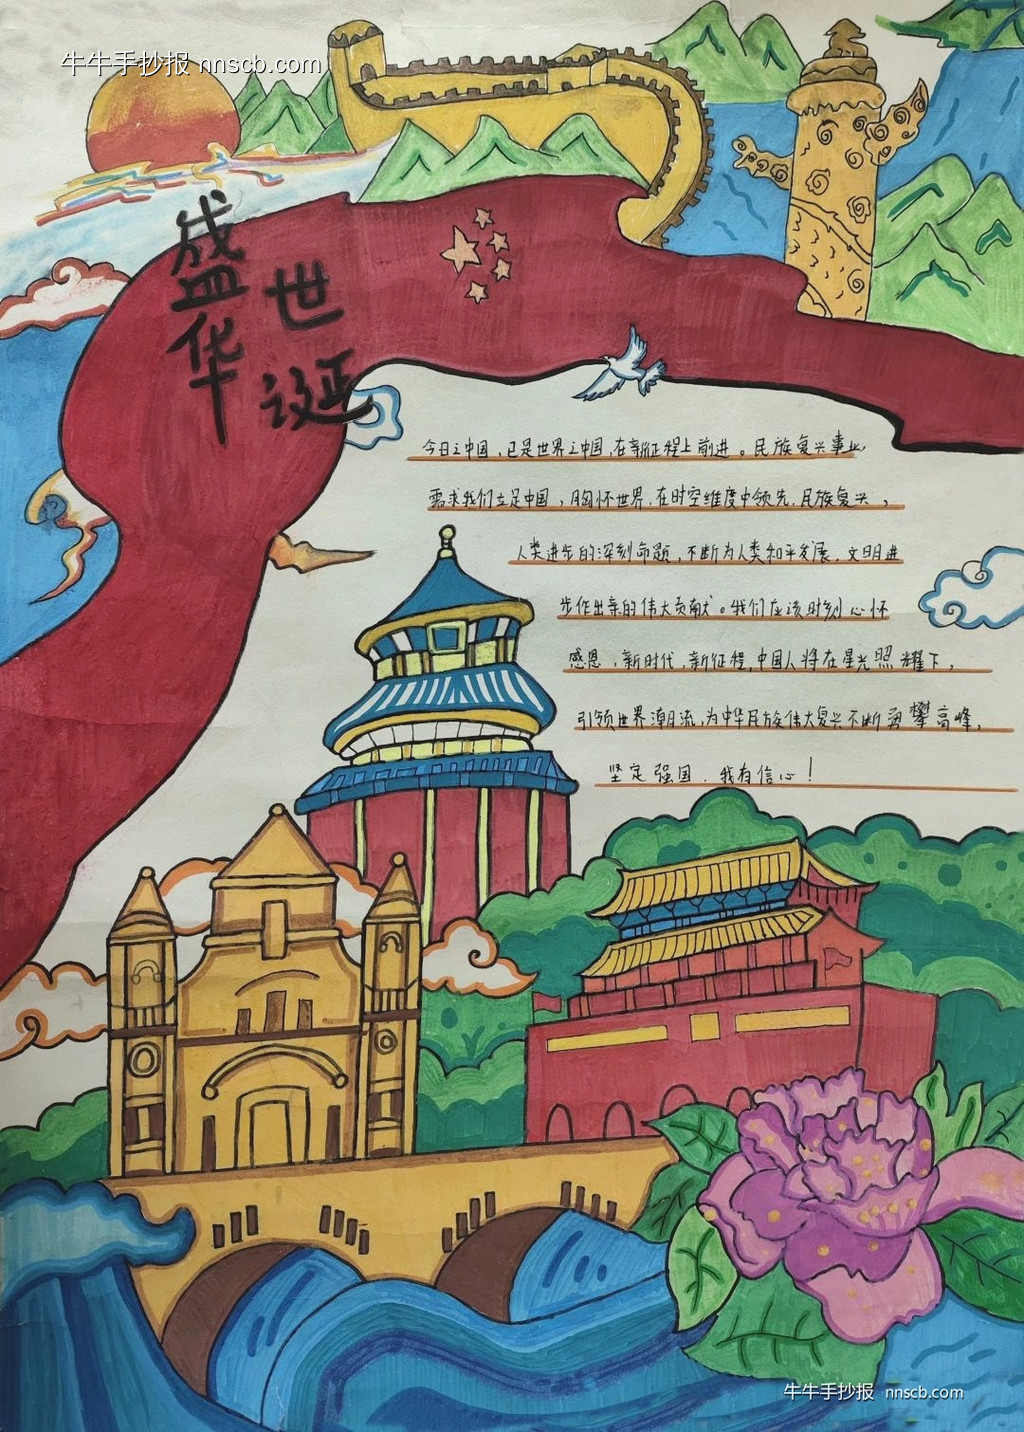 牛牛手抄报 nnscb.com
盛世
华诞
今日之中国，已是世界之中国，在新征程上前进。民族复兴事业，
需求我们立足中国，胸怀世界，在时空维度中领先，民族复兴，
人类进步的深刻命题，不断为人类和平发展，文明进
步作出亲的伟大贡献。我们应该时刻心怀
感恩，新时代，新征程，中国人将在星光照耀下，
引领世界潮流，为中华民族伟大复兴不断勇攀高峰，
坚定强国，我有信心！
牛牛手抄报 nnscb.com